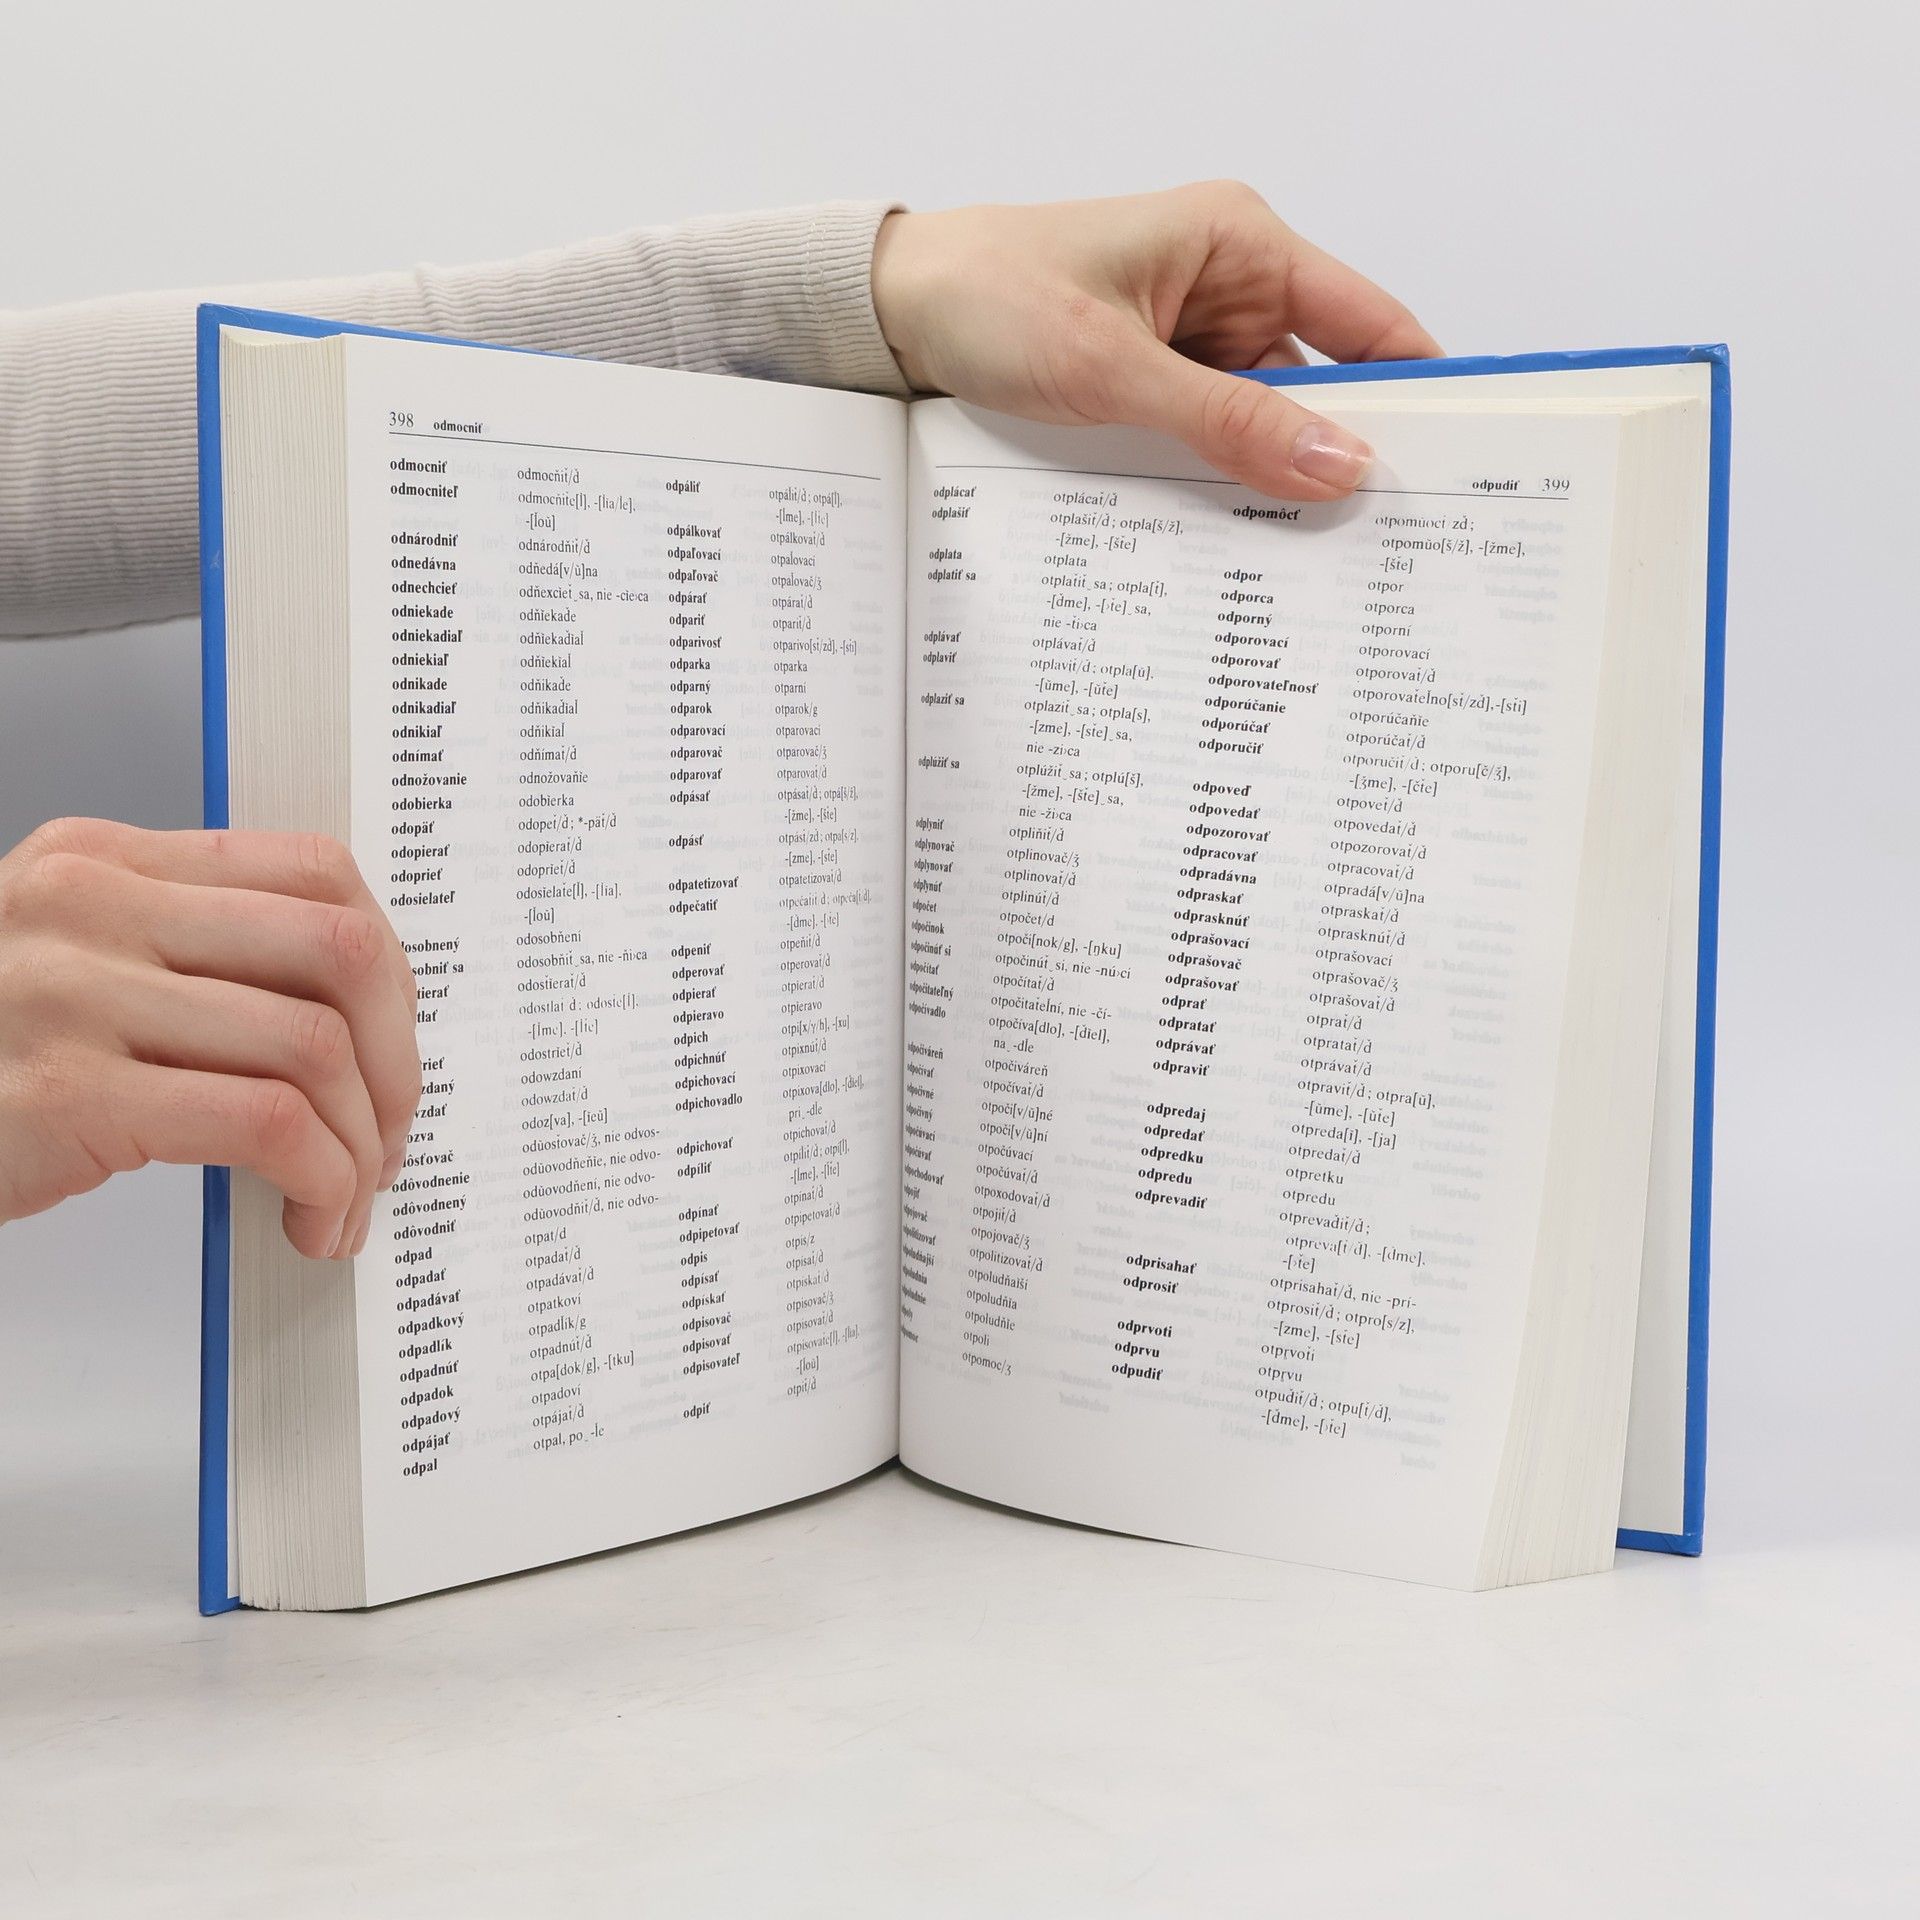 398 odmocniť
odmocniť odmocňiť/ď
odmocniteľ
-[ľoǔ]
odnárodniť odnárodňiť/ď
odnedávna odňedá[v/ǔ]na
odnechcieť
odniekade odňiekaďe
odniekadiaľ odňiekaďiaľ
odniekiaľ odňiekiaľ
odnikade odňikaďe
odnikadiaľ odňikaďiaľ
odnikiaľ odňikiaľ
odnímať odňímať/ď
odnožovanie odnožovaňie
odobierka odobierka
odopäť odopeť/ď; *-päť/ď
odopierať odopierať/ď
odoprieť odoprieť/ď
odosielateľ
-[ľoǔ]
odosobňení
odosobňiť‿sa, nie -ňi›ca
odosťierať/ď
-[ľme], -[ľťe]
odostrieť/ď
odowzdaní
odowzdať/ď
odoz[va], -[ieǔ]
odǔosťovač/ǯ, nie odvos-
odôvodnenie odǔovodňeňie, nie odvo-
odôvodnený odǔovodňení, nie odvo-
odôvodniť odǔovodňiť/ď, nie odvo-
odpad otpat/d
odpadať otpadať/ď
odpadávať otpadávať/ď
odpadkový otpatkoví
odpadlík otpadlík/g
odpadnúť otpadnúť/ď
odpadok otpa[dok/g], -[tku]
odpadový otpadoví
odpájať otpájať/ď
odpal otpal, po‿-ľe
odpáliť otpáliť/ď; otpá[ľ],
-[ľme], -[ľťe]
odpálkovať otpálkovať/ď
odpaľovací otpaľovací
odpaľovač otpaľovač/ǯ
odpárať otpárať/ď
odpariť otpariť/ď
odparivosť otparivo[sť/zď], -[sťi]
odparka otparka
odparný otparní
odparok otparok/g
odparovací otparovací
odparovač otparovač/ǯ
odparovať otparovať/ď
odpásať otpásať/ď; otpá[š/ž],
-[žme], -[šťe]
odpásť otpásť/zď; otpa[s/z],
-[zme], -[sťe]
odpatetizovať otpatetizovať/ď
odpečatiť
-[ďme], -[›ťe]
odpeniť otpeňiť/ď
odperovať otperovať/ď
odpierať otpierať/ď
odpieravo otpieravo
odpich otpi[x/γ/h], -[xu]
odpichnúť otpixnúť/ď
odpichovací otpixovací
odpichovadlo otpixova[dlo], -[ďiel],
pri‿-dle
odpichovať otpichovať/ď
odpíliť otpíliť/ď; otpí[ľ],
-[ľme], -[ľťe]
odpínať otpínať/ď
odpipetovať otpipetovať/ď
odpis otpis/z
odpísať otpísať/ď
odpískať otpískať/ď
odpisovač otpisovač/ǯ
odpisovať otpisovať/ď
odpisovateľ
-[ľoǔ]
odpiť otpiť/ď
odpudiť 399
odplácať otplácať/ď
odplašiť otplašiť/ď; otpla[š/ž],
-[žme], -[šťe]
odplata otplata
odplatiť sa otplaťiť‿sa; otpla[ť],
-[ďme], -[›ťe]‿sa,
nie -ťi›ca
odplávať otplávať/ď
odplaviť otplaviť/ď; otpla[ǔ],
-[ǔme], -[ǔťe]
odplaziť sa otplaziť‿sa; otpla[s],
-[zme], -[sťe]‿sa,
nie -zi›ca
odplúžiť sa otplúžiť‿sa; otplú[š],
-[žme], -[šťe]‿sa,
nie -ži›ca
odplyniť otpliňiť/ď
odplynovač otplinovač/ǯ
odplynovať otplinovať/ď
odplynúť otplinúť/ď
odpočet otpočet/d
odpočinok otpoči[nok/g], -[ŋku]
odpočinúť si otpočinúť‿si, nie -nú›ci
odpočítať otpočítať/ď
odpočítateľný otpočítateľní, nie -čí-
odpočívadlo otpočíva[dlo], -[ďiel],
na‿-dle
odpočiváreň otpočiváreň
odpočívať otpočívať/ď
odpočivné otpoči[v/ǔ]né
odpočivný otpoči[v/ǔ]ní
odpočúvací otpočúvací
odpočúvať otpočúvať/ď
odpochodovať otpoxodovať/ď
odpojiť otpojiť/ď
odpojovač otpojovač/ǯ
odpolitizovať otpolitizovať/ď
odpoludňajší otpoludňaiší
odpoludnia otpoludňia
odpoludnie otpoludňie
odpoly otpoli
odpomoc otpomoc/ʒ
odpomôcť
otpomǔo[š/ž], -[žme],
-[šťe]
odpor otpor
odporca otporca
odporný otporní
odporovací otporovací
odporovať otporovať/ď
odporovateľnosť otporovateľno[sť/zď],-[sťi]
odporúčanie otporúčaňie
odporúčať otporúčať/ď
odporučiť otporučiť/ď; otporu[č/ǯ],
-[ǯme], -[čťe]
odpoveď otpoveť/ď
odpovedať otpovedať/ď
odpozorovať otpozorovať/ď
odpracovať otpracovať/ď
odpradávna otpradá[v/ǔ]na
odpraskať otpraskať/ď
odprasknúť otprasknúť/ď
odprašovací otprašovací
odprašovač otprašovač/ǯ
odprašovať otprašovať/ď
odprať otprať/ď
odpratať otpratať/ď
odprávať otprávať/ď
odpraviť otpraviť/ď; otpra[ǔ],
-[ǔme], -[ǔťe]
odpredaj otpreda[i], -[ja]
odpredať otpredať/ď
odpredku otpretku
odpredu otpredu
odprevadiť otprevaďiť/ď;
otpreva[ť/ď], -[ďme],
-[›ťe]
odprisahať otprisahať/ď, nie -prí-
odprosiť otprosiť/ď; otpro[s/z],
-[zme], -[sťe]
odprvoti otpr̥voťi
odprvu otpr̥vu
odpudiť otpuďiť/ď; otpu[ť/ď],
-[ďme], -[›ťe]